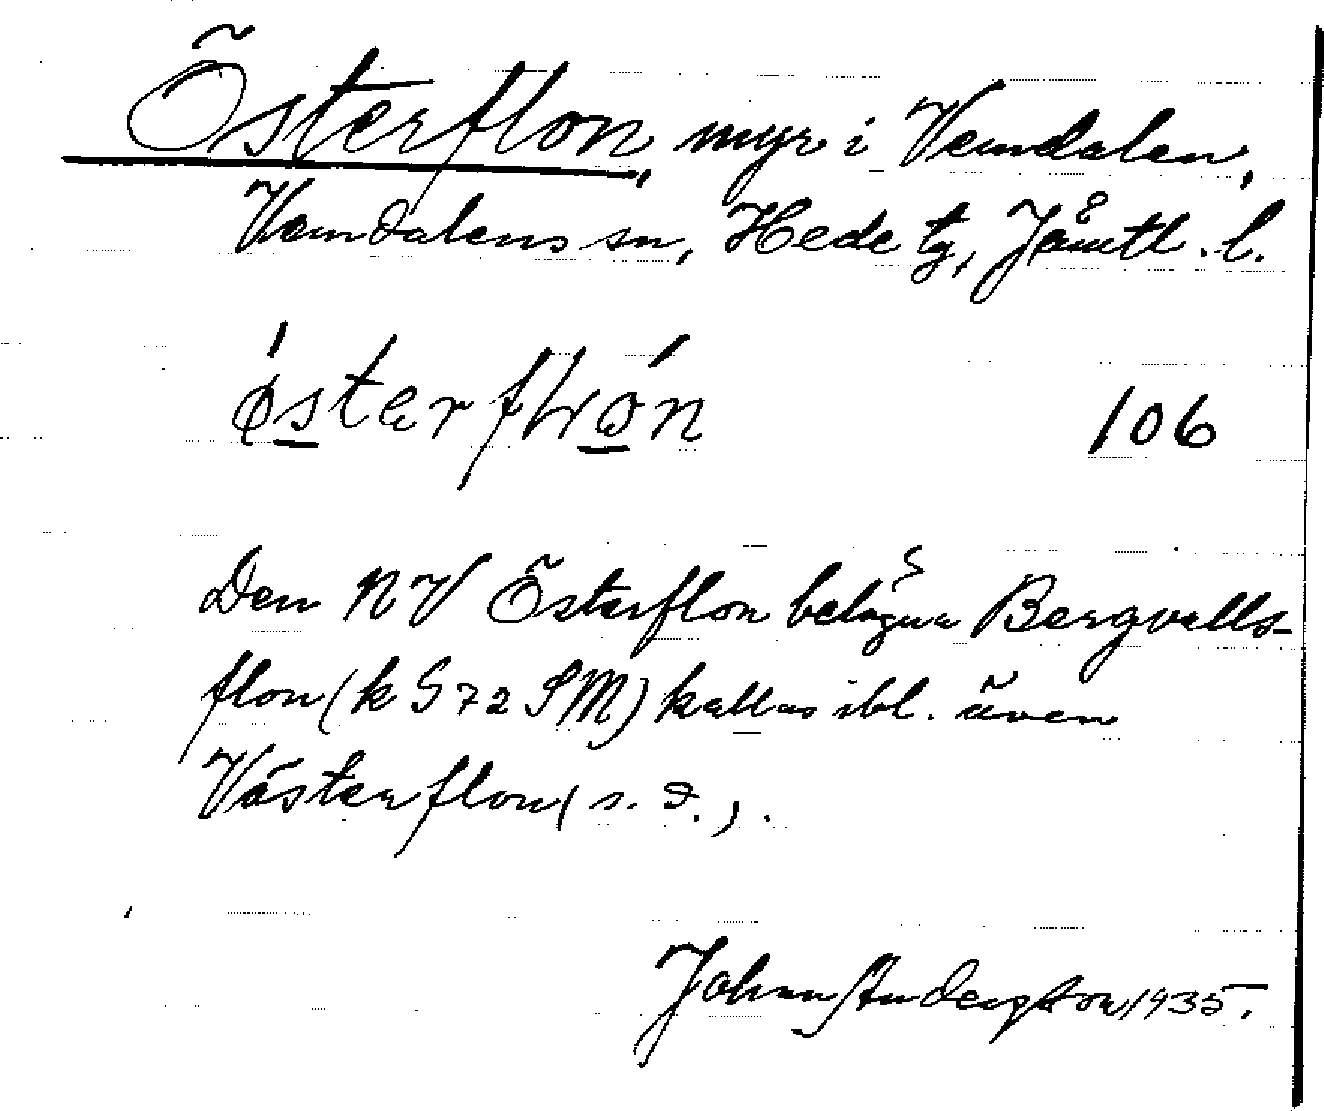 Österflon, myr i Vemdalen,
Vemdalens sn, Hede tg, Jämtl. l.
106
Den NV Österflon belägna Bergvalls-
flon (k G 72 SM) kallas ibl. även
Västerflon (s. d.).
Johan Anderzon 1935.